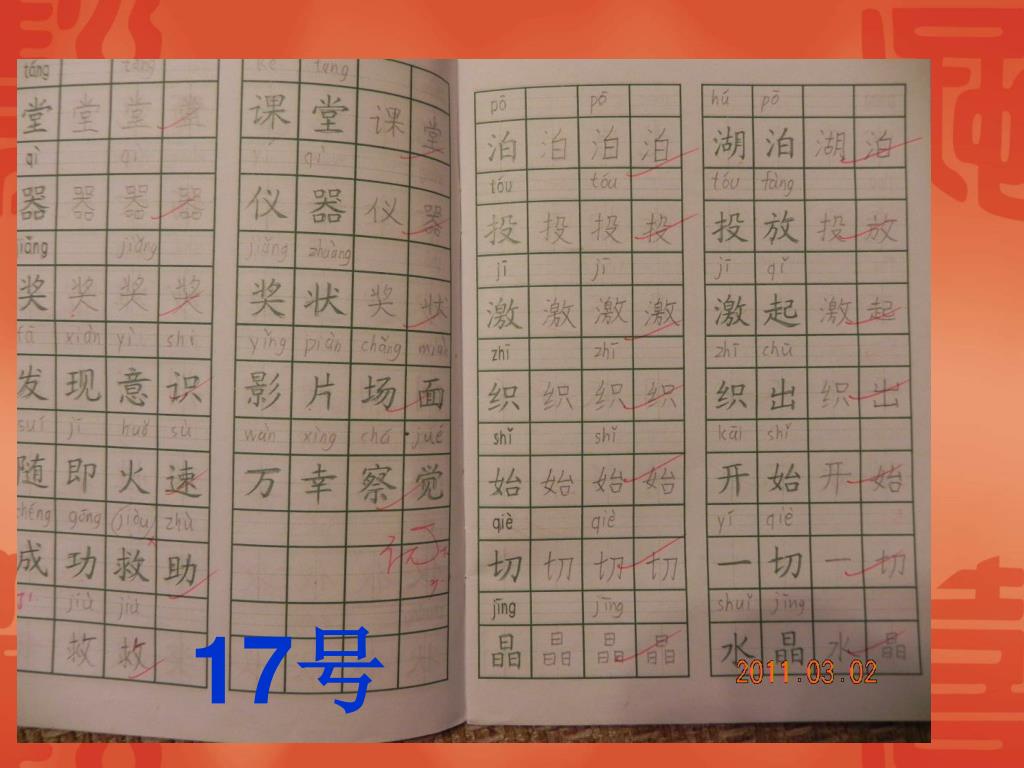 táng táng
堂 堂 堂 堂
qì qì
器 器 器 器
jiǎng jiǎng
奖 奖 奖 奖
fā xiàn yì shi
发 现 意 识
suí jí huǒ sù
随 即 火 速
chéng gōng (jiòu) zhù
成 功 救 助
jiù jiù
救 救
kè táng
课 堂 课 堂
yí qì
仪 器 仪 器
jiǎng zhuàng
奖 状 奖 状
yǐng piàn chǎng miàn
影 片 场 面
wàn xìng chá jué
万 幸 察 觉
pō pō
泊 泊 泊 泊
tóu tóu
投 投 投 投
jī jī
激 激 激 激
zhī zhī
织 织 织 织
shǐ shǐ
始 始 始 始
qiè qiè
切 切 切 切
jīng jīng
晶 晶 晶 晶
hú pō
湖 泊 湖 泊
tóu fàng
投 放 投 放
jī qǐ
激 起 激 起
zhī chū
织 出 织 出
kāi shǐ
开 始 开 始
yí qiè
一 切 一 切
shuǐ jīng
水 晶 水 晶
17号
2011.03.02